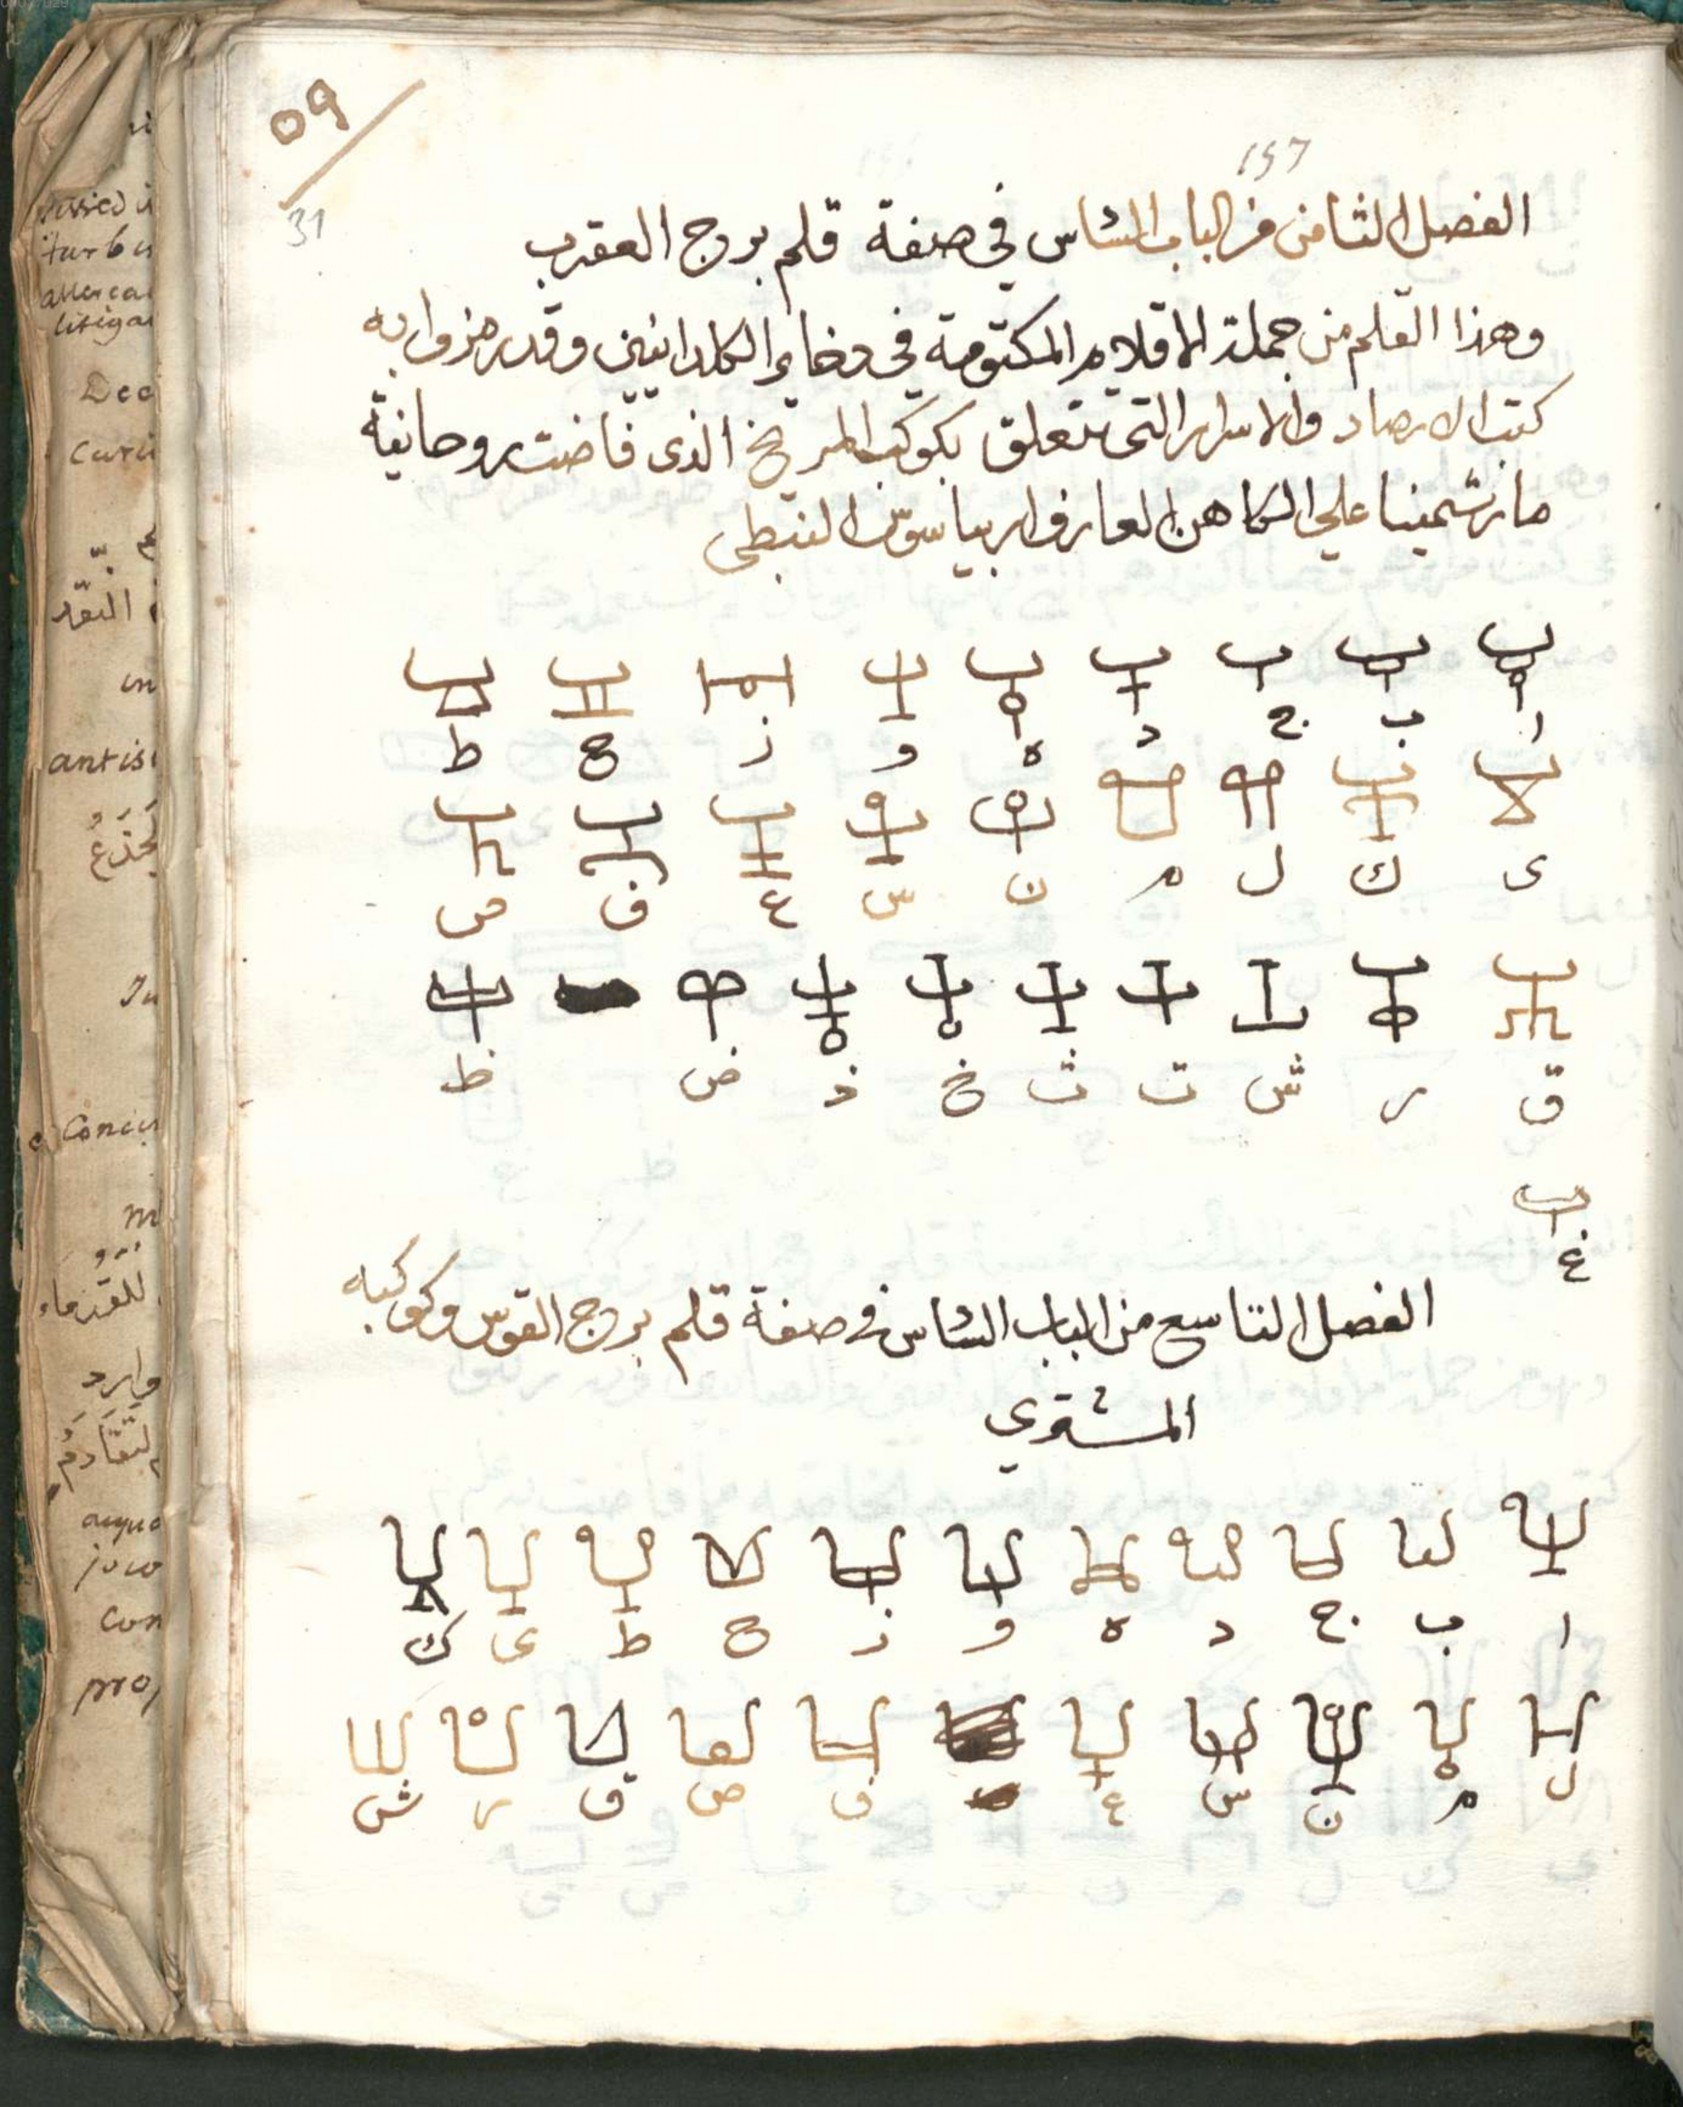 09
157
31
الفصل الثامن من الباب السادس في صفة قلم برج العقرب
وهذا القلم من جملة الاقلام المكتومة في دخاير الكلدانيين وقد رمزوا به
كتب الارصاد والاسرار التي تتعلق بكوكب المريخ الذى فاضت روحانية
على الكاهن العارف النبطى
ا ب ج د ه و ز ح ط
ى ك ل م ن س ع ف ص
ق ر ش ت ث خ ذ ض ظ
غ
الفصل التاسع من الباب السادس في صفة قلم برج القوس وكوكبه
المشتري
ا ب ج د ه و ز ح ط ى ك
ل م ن س ع ف ص ق ر ش
turbu
litiga
Dec
curi
النقد
in
antis
In
Concu
m
للقدماء
وارد
acqua
joco
Con
pro